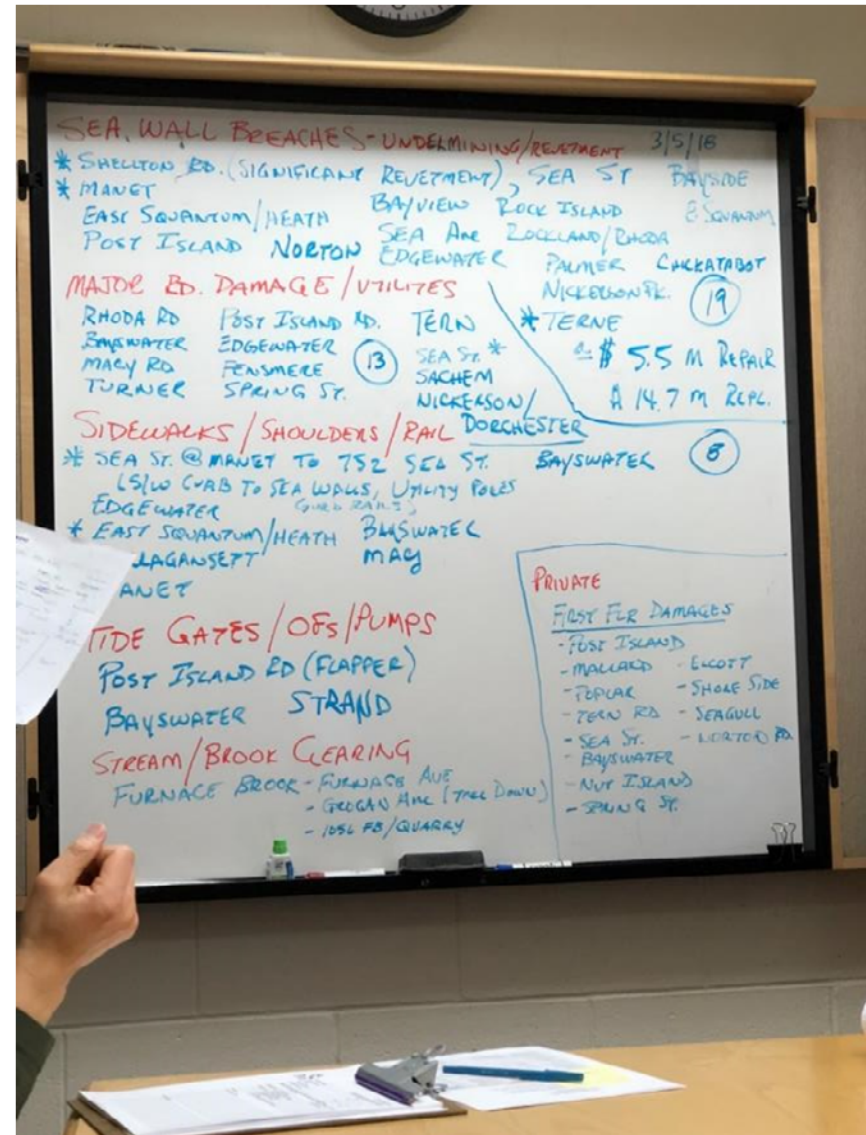 SEA WALL BREACHES - UNDERMINING/REVETMENT 3/5/18
* SHELLTON RD. (SIGNIFICANT REVETMENT), SEA ST BAYSIDE
* MANET BAYVIEW ROCK ISLAND E SQUANTUM
EAST SQUANTUM/HEATH SEA AVE ROCKLAND/RHODA
POST ISLAND NORTON EDGEWATER PALMER CHICKATABOT
NICKERSON PK. 19
* TERNE
$ 5.5 M REPAIR
14.7 M REPL.
MAJOR RD. DAMAGE/UTILITES
RHODA RD POST ISLAND RD. TERN
BAYSWATER EDGEWATER 13 SEA ST. *
MACY RD FENSMERE SACHEM
TURNER SPRING ST. NICKERSON/
DORCHESTER
SIDEWALKS/SHOULDERS/RAIL
* SEA ST. @ MANET TO 752 SEA ST. BAYSWATER 8
(S/W CURB TO SEA WALLS, UTILITY POLES
EDGEWATER (GUARD RAILS)
* EAST SQUANTUM/HEATH BAYSWATER
LAGANSETT MACY
ANET
TIDE GATES/OFS/PUMPS
POST ISLAND RD (FLAPPER)
BAYSWATER STRAND
STREAM/BROOK CLEARING
FURNACE BROOK - FURNACE AVE
- GROGAN AVE (TREE DOWN)
- 1056 FB/QUARRY
PRIVATE
FIRST FLR DAMAGES
- POST ISLAND
- MALLARD - ELCOTT
- POPLAR - SHORE SIDE
- TERN RD - SEAGULL
- SEA ST. - NORTON RD.
- BAYSWATER
- NUT ISLAND
- SPRING ST.